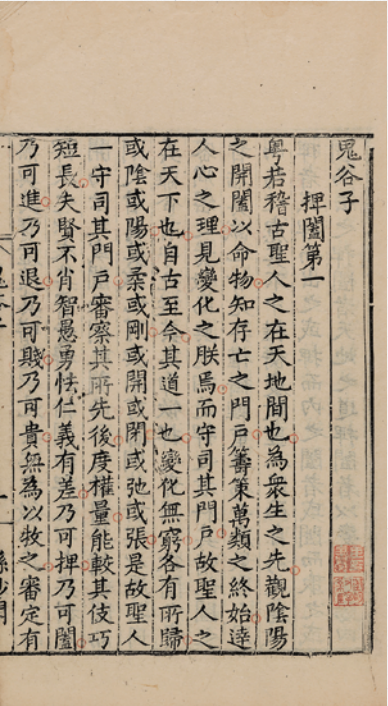 鬼谷子
捭闔第一
粤若稽古聖人之在天地間也為衆生之先觀陰陽
之開闔以命物知存亡之門戶籌策萬類之終始達
人心之理見變化之朕焉而守司其門戶故聖人之
在天下也自古至今其道一也變化無窮各有所歸
或陰或陽或柔或剛或開或閉或弛或張是故聖人
一守司其門戶審察其所先後度權量能較其伎巧
短長夫賢不肖智愚勇怯仁義有差乃可捭乃可闔
乃可進乃可退乃可賤乃可貴無為以牧之審定有